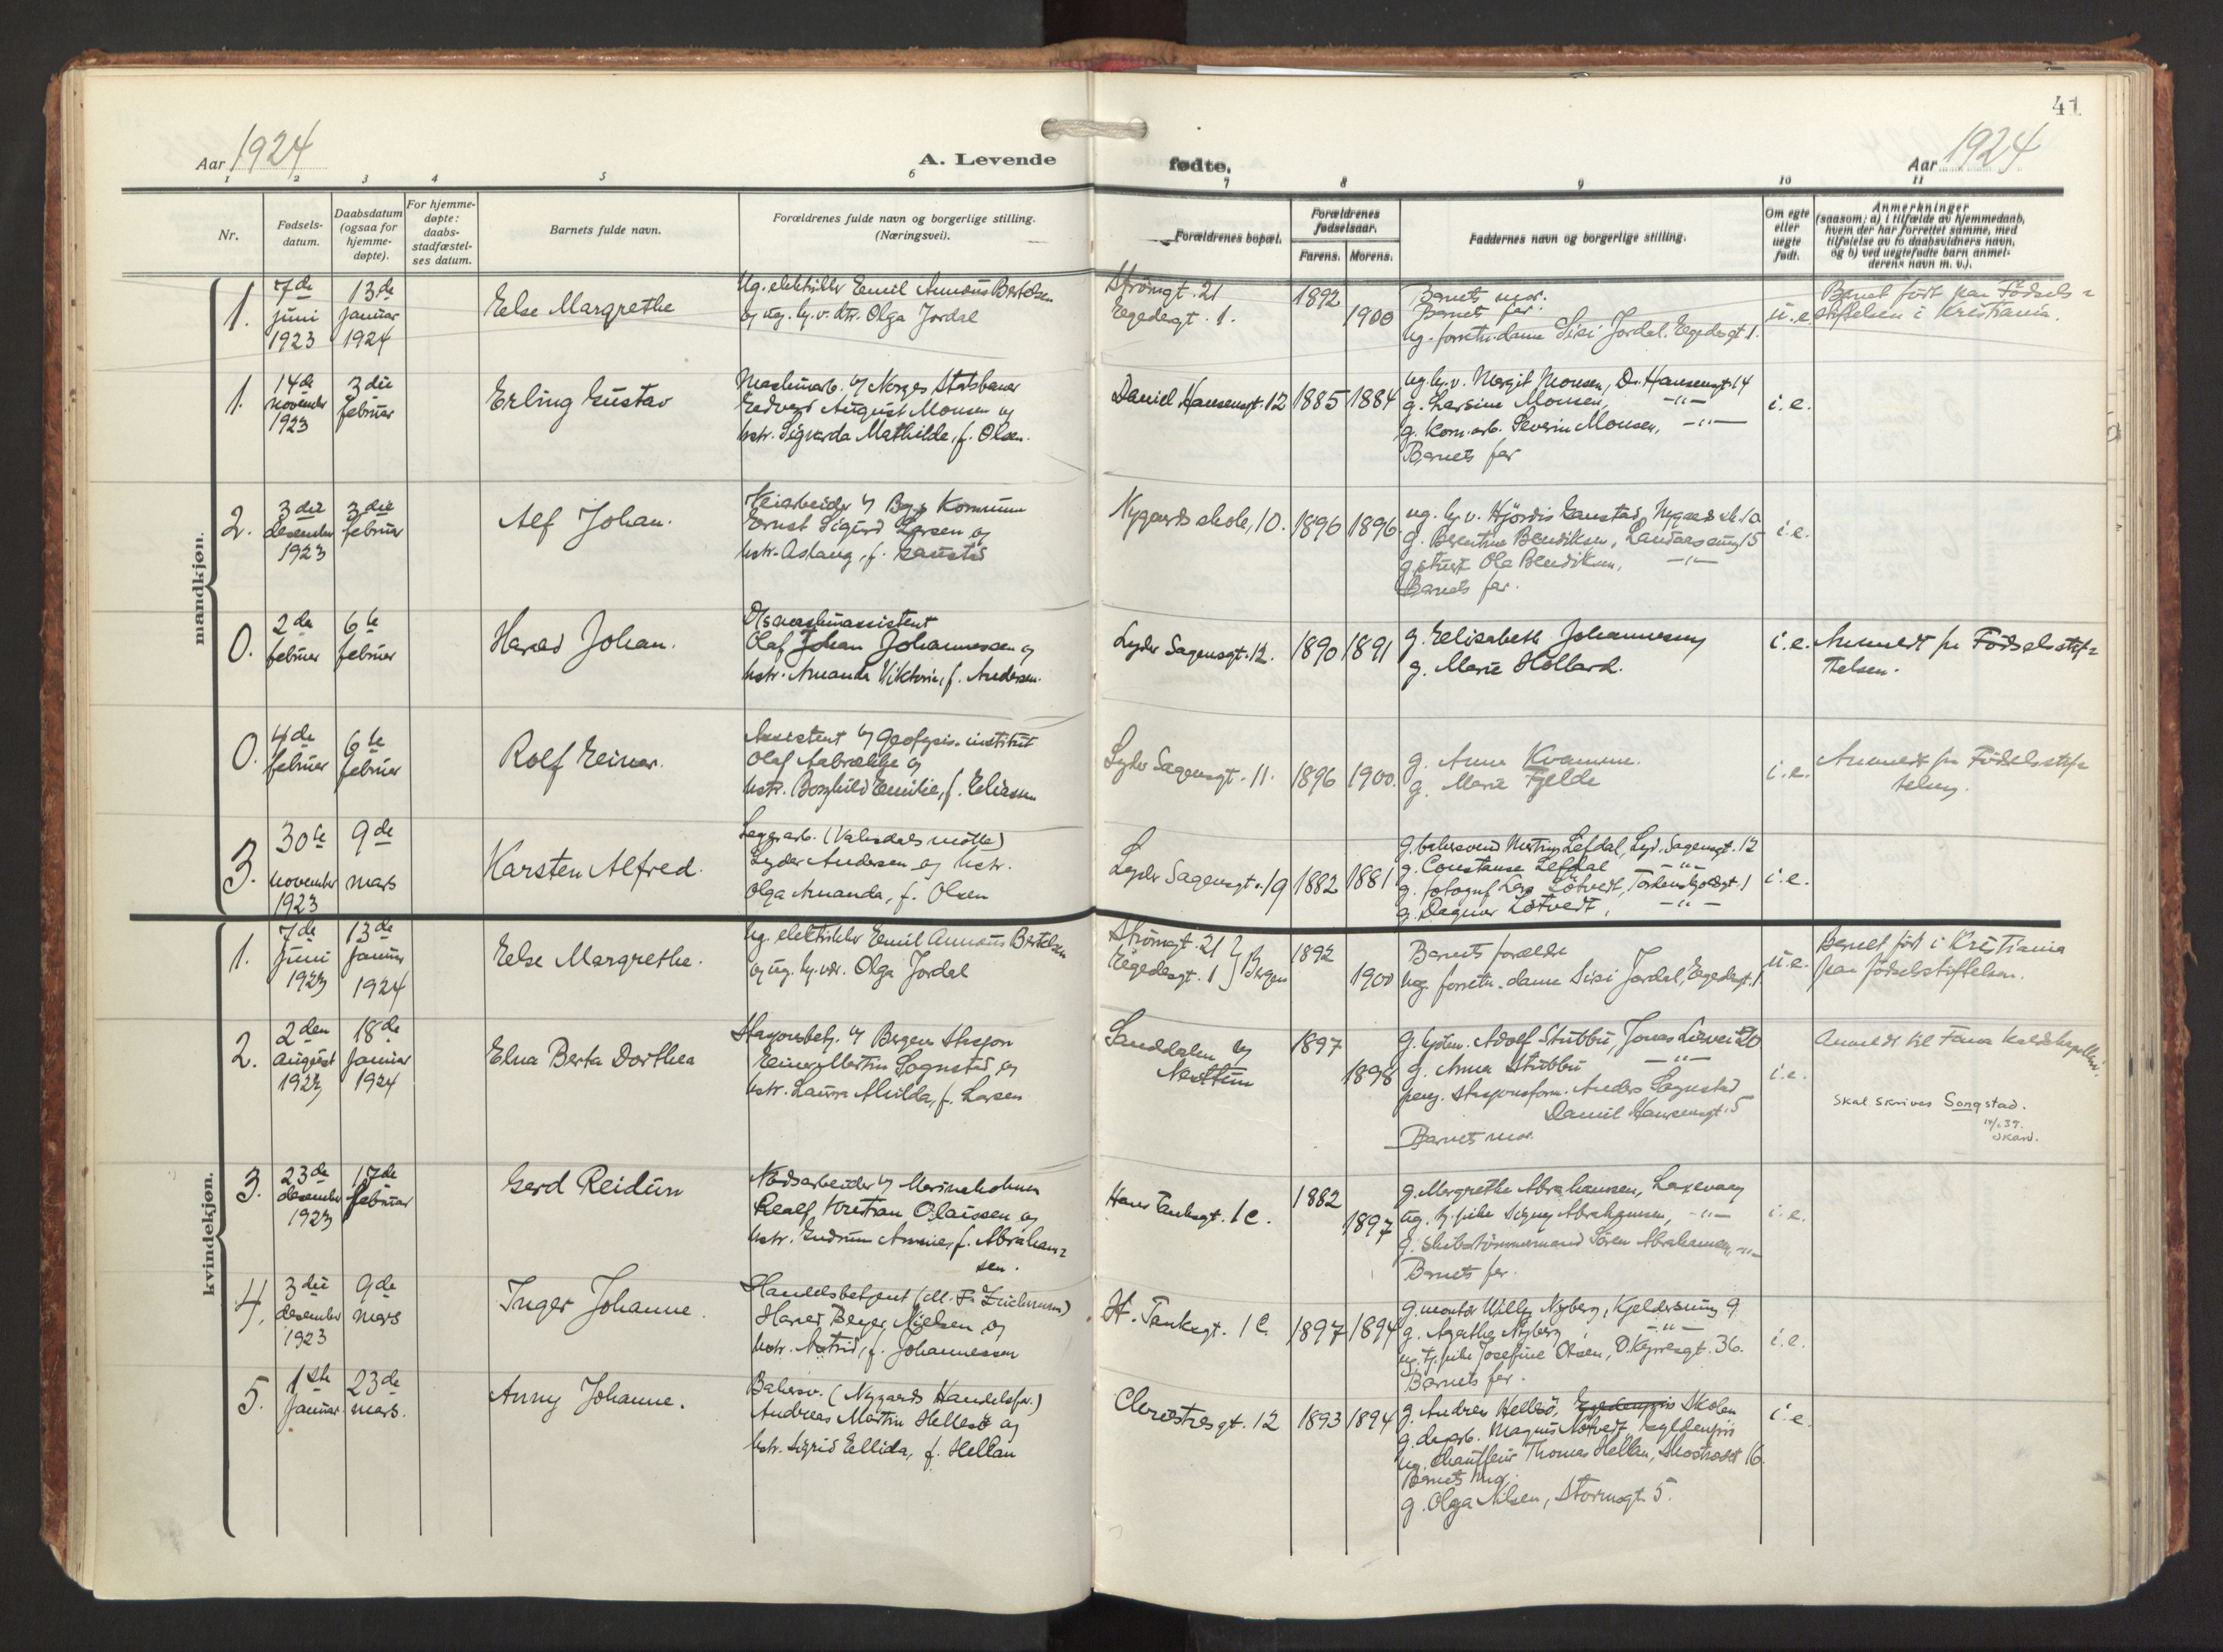 41
Aar 1924
A. Levende
fødte.
Aar 1924
1 2 3 4 5 6 7 8 9 10 11
Nr.
Fødsels-
datum.
Daabsdatum
(ogsaa for
hjemme-
døpte).
For hjemme-
døpte:
daabs-
stadfæstel-
ses datum.
Barnets fulde navn.
Forældrenes fulde navn og borgerlige stilling.
(Næringsvei).
Forældrenes bopæl.
Forældrenes
fødselsaar.
Farens. Morens.
Faddernes navn og borgerlige stilling.
Om egte
eller
uegte
født.
Anmerkninger
(saasom: a) i tilfælde av hjemmedaab,
hvem der har forrettet samme, med
tilføielse av to daabsvidners navn,
og b) ved uegtefødte barn anmel-
derens navn m. v.).
mandkjøn.
1.
7de
juni
1923
13de
januar
1924
Else Margrethe
Ug. elektriker Emil Bertelsen
og ug. Olga Jordal
Strömgt. 21
Egedesgt. 1.
1892
1900
Barnets mor.
Barnets far.
ug. forretn. dame Sisi Jordal. Egedesgt 1.
u.e.
Barnet födt paa Födsels=
stiftelsen i Kristiania.
1.
14de
november
1923
3die
februar
Erling Gustav
Maskinarb. v/ Norges Statsbaner
Edvard August Monsen og
hstr. Sigvarda Mathilde, f. Olsen.
Daniel Hansensgt. 12
1885
1884
ug. hj.v. Margit Monsen, D. Hansensgt 14
g. Larsine Monsen, -"-
g. Kom.arb. Severin Monsen, -"-
Barnets far
i.e.
2.
3die
desember
1923
3die
februar
Alf Johan.
Veiarbeider v/ Bg.s Kommune
Ernst Sigurd Larsen og
hstr. Aslaug, f.
Nygaards skole, 10.
1896
1896
ug. hj v. Hjördis
g. Berentine Bendiksen, Landaasveug 15
Ole Bendiksen, -"-
Barnets far.
i.e.
0.
2den
februar
6te
februar
Harald Johan.
Olaf Johan Johannessen og
hstr. Amanda Viktoria, f. Andersen.
Lyder Sagensgt. 12.
1890
1891
g. Elisabeth Johannessen
g. Marie Hollard.
i.e.
Anmeldt fra Födselsstif=
telsen.
0.
4de
februar
6te
februar
Rolf Einar.
Assistent v/ geofysis. institut
Olaf Aabrække og
hstr. Borghild Emilie, f. Eliassen
Lyder Sagensgt. 11.
1896
1900.
g. Anna Kvamme.
g. Marie Fjelde
i.e.
Anmeldt fra Födselsstif=
telsen.
3.
30te
november
1923
9de
mars
Karsten Alfred.
Lagerarb. (Vaksdals mölle)
Lyder Andersen og hstr.
Olga Amanda, f. Olsen
Lyder Sagensgt. 19
1882
1881
g. bakersvend Lefdal, Lyd. Sagensgt. 12
g. Constanse Lefdal -"-
g. fotograf Lars Lötvedt, Torkenskjoldsgt. 1
g. Dagmar Lötvedt, -"-
i.e.
kvindekjøn.
1.
7de
juni
1923
13de
januar
1924
Else Margrethe.
Ug. elektriker Emil Bertelsen
og ug. Olga Jordal
Strömgt. 21
Egedesgt. 1 } Bergen
1892
1900
Barnets forældre
ug. forretn. dame Sisi Jordal, Egedesgt. 1
u.e.
Barnet född i Kristiania
paa födselsstiftelsen.
2.
2den
august
1923
18de
januar
1924
Elna Berta Dorthea
Stasjonsbetj. v/ Bergen Stasjon
Einar Martin Sognstad, og
hstr. Laura Alvilda, f. Larsen
Sanddalen v/
Nesttun
1897
1898
g. Adolf Stubbu, Jonas Liesvei 20
g. Anna Stubbu -"-
pens. stasjonsform. Anders Sognstad
Daniel Hansensgt. 5
Barnets mor.
i.e.
Anmeldt til Fana
Skal skrives Songstad.
Skard.
3.
23de
desember
1923
17de
februar
Gerd Reidun
Rolf Kristian Olaissen og
hstr. Gudrun f. Abraham=
sen.
Hans Tanksgt. 1c.
1882
1897
g. Margrethe Abrahamsen, Laxevaag
ug. tj.pike Signy Abrahamsen, -"-
g. skibstömmermand Sören Abrahamsen, -"-
Barnets far.
i.e.
4.
3die
desember
1923
9de
mars
Inger Johanne.
Handelsbetjent
Beyer Nielsen og
hstr. Astrid, f. Johannessen
H. Tanksgt. 1c.
1897
1894
g. montör Willy Nyberg, Kjeldersmug 9.
g. Agathe Nyberg, -"-
ug. tj. pike Josefine Olsen, D. Kyrresgt. 36.
Barnets far.
i.e.
5.
1ste
januar
23de
mars.
Anny Johanne.
Bakersv. (Nygaards Handelsfor.)
Andreas Martin Hellesö og
hstr. Sigrid Ellida, f. Hellan
Claus
1893
1894
g. Andrea Hellesö, Skolen
g. Magnus Nötvedt,
ug. Chauffeur Thomas Hellan, Skostrædet 16.
Barnets mor.
g. Olga Nilsen, Stormsgt. 5.
i.e.